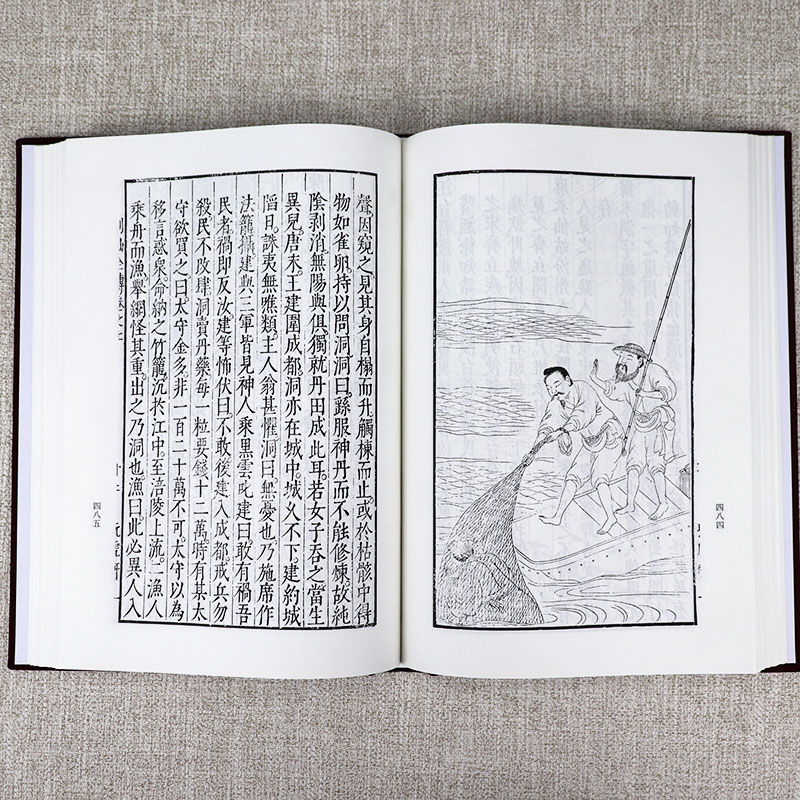 四八四
聲。因窺之見其身自榻而升觸棟而止。或於枯骸中得
物如雀卵。持以問洞洞曰。繇服神丹而不能修煉。故純
陰剥消。無陽與俱。獨就丹田成此耳。若女子吞之當生
異兒。唐末。王建圍成都。洞亦在城中。城久不下建約城
陷日。誅夷無噍類。主人翁甚懼。洞曰。無憂也。乃施席作
法籠攝。建與三軍皆見神人乘黑雲。叱建曰敢有禍吾
民者。禍即反汝。建等怖伏曰。不敢。後建入成都。戒兵勿
殺民不改肆。洞賣丹藥每一粒要錢十二萬。時有某太
守欲買之曰。太守金多。非一百二十萬不可。太守以為
移言惑衆。命納之竹籠。沉於江中。至涪陵上流。二漁人
乘舟而漁。舉網怪其重。出之乃洞也。漁曰。此必異人入
四八五